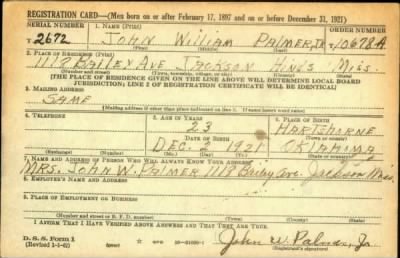 REGISTRATION CARD—(Men born on or after February 17, 1897 and on or before December 31, 1921)
SERIAL NUMBER 1. NAME (Print) ORDER NUMBER
2672 JOHN WILLIAM PALMER, JR. 10678A
(First) (Middle) (Last)
2. PLACE OF RESIDENCE (Print)
1118 BAILEY AVE JACKSON HINDS MISS.
(Number and street) (Town, township, village, or city) (County) (State)
[THE PLACE OF RESIDENCE GIVEN ON THE LINE ABOVE WILL DETERMINE LOCAL BOARD
JURISDICTION; LINE 2 OF REGISTRATION CERTIFICATE WILL BE IDENTICAL]
3. MAILING ADDRESS
SAME
[Mailing address if other than place indicated on line 2. If same insert word same]
4. TELEPHONE 5. AGE IN YEARS 6. PLACE OF BIRTH
23 HARTSHORNE
DATE OF BIRTH (Town or county)
DEC. 2 1921 OKLAHOMA
(Exchange) (Number) (Mo.) (Day) (Yr.) (State or country)
7. NAME AND ADDRESS OF PERSON WHO WILL ALWAYS KNOW YOUR ADDRESS
MRS. JOHN W. PALMER 1118 Bailey Ave. Jackson Miss.
8. EMPLOYER'S NAME AND ADDRESS
9. PLACE OF EMPLOYMENT OR BUSINESS
(Number and street or R. F. D. number) (Town) (County) (State)
I AFFIRM THAT I HAVE VERIFIED ABOVE ANSWERS AND THAT THEY ARE TRUE.
D. S. S. Form 1
(Revised 1-1-42) (over) John W. Palmer, Jr.
(Registrant's signature)